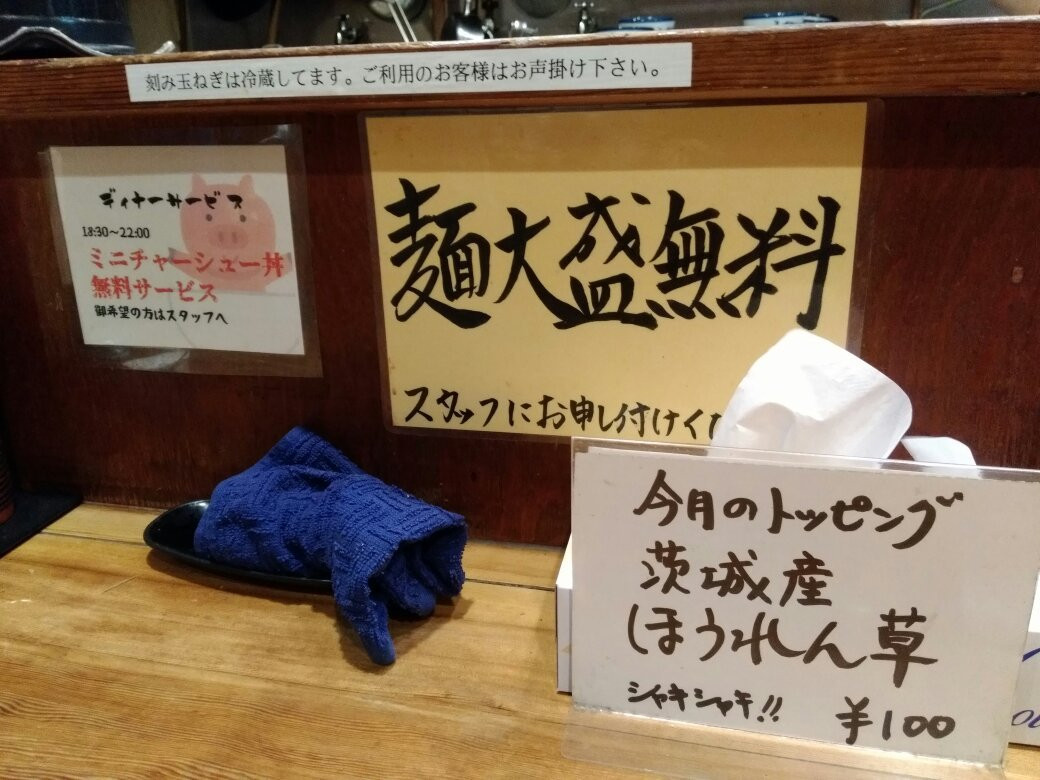 刻み玉ねぎは冷蔵してます。ご利用のお客様はお声掛け下さい。
ディナーサービス
18:30～22:00
ミニチャーシュー丼
無料サービス
御希望の方はスタッフへ
麺大盛無料
スタッフにお申し付けくだ
今月のトッピング
茨城産
ほうれん草
シャキシャキ!!
¥100